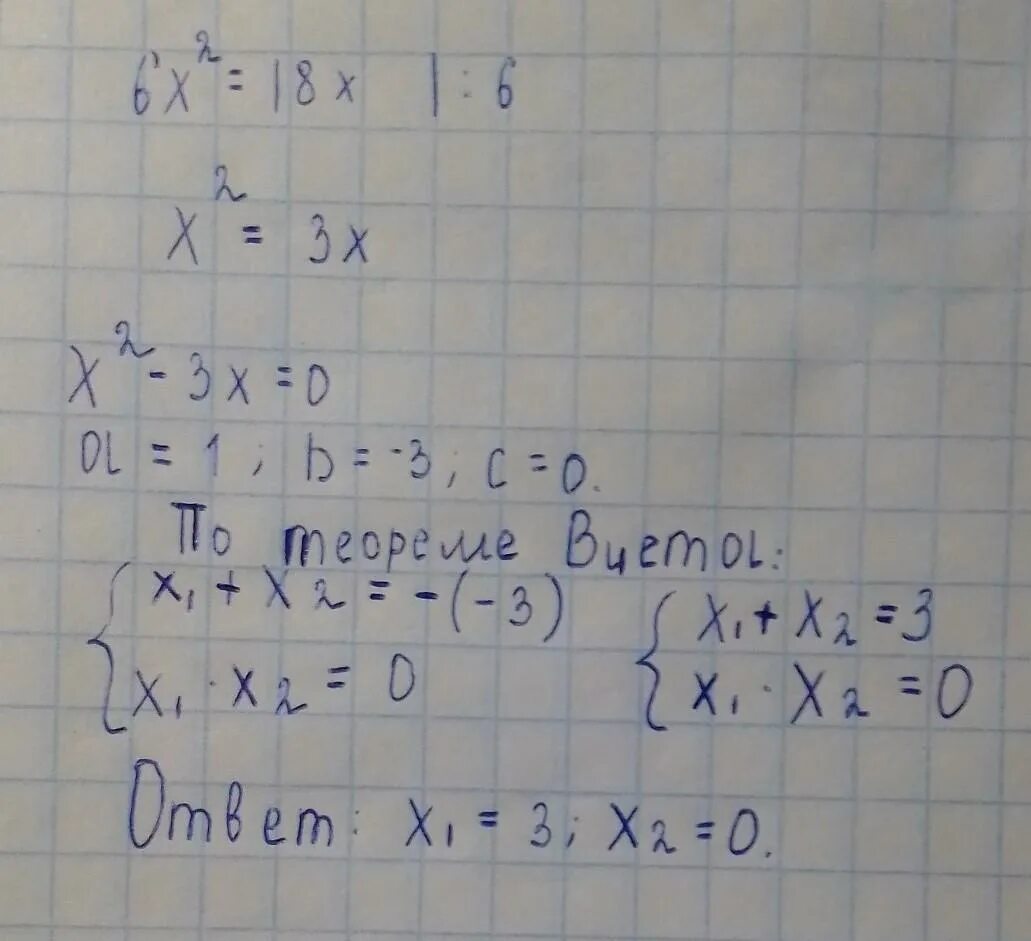 6x² = 18x | : 6
x² = 3x
x² - 3x = 0
a = 1; b = -3; c = 0.
По теореме Виета:
{ x₁ + x₂ = -(-3) { x₁ + x₂ = 3
x₁ · x₂ = 0 x₁ · x₂ = 0
Ответ: x₁ = 3; x₂ = 0.